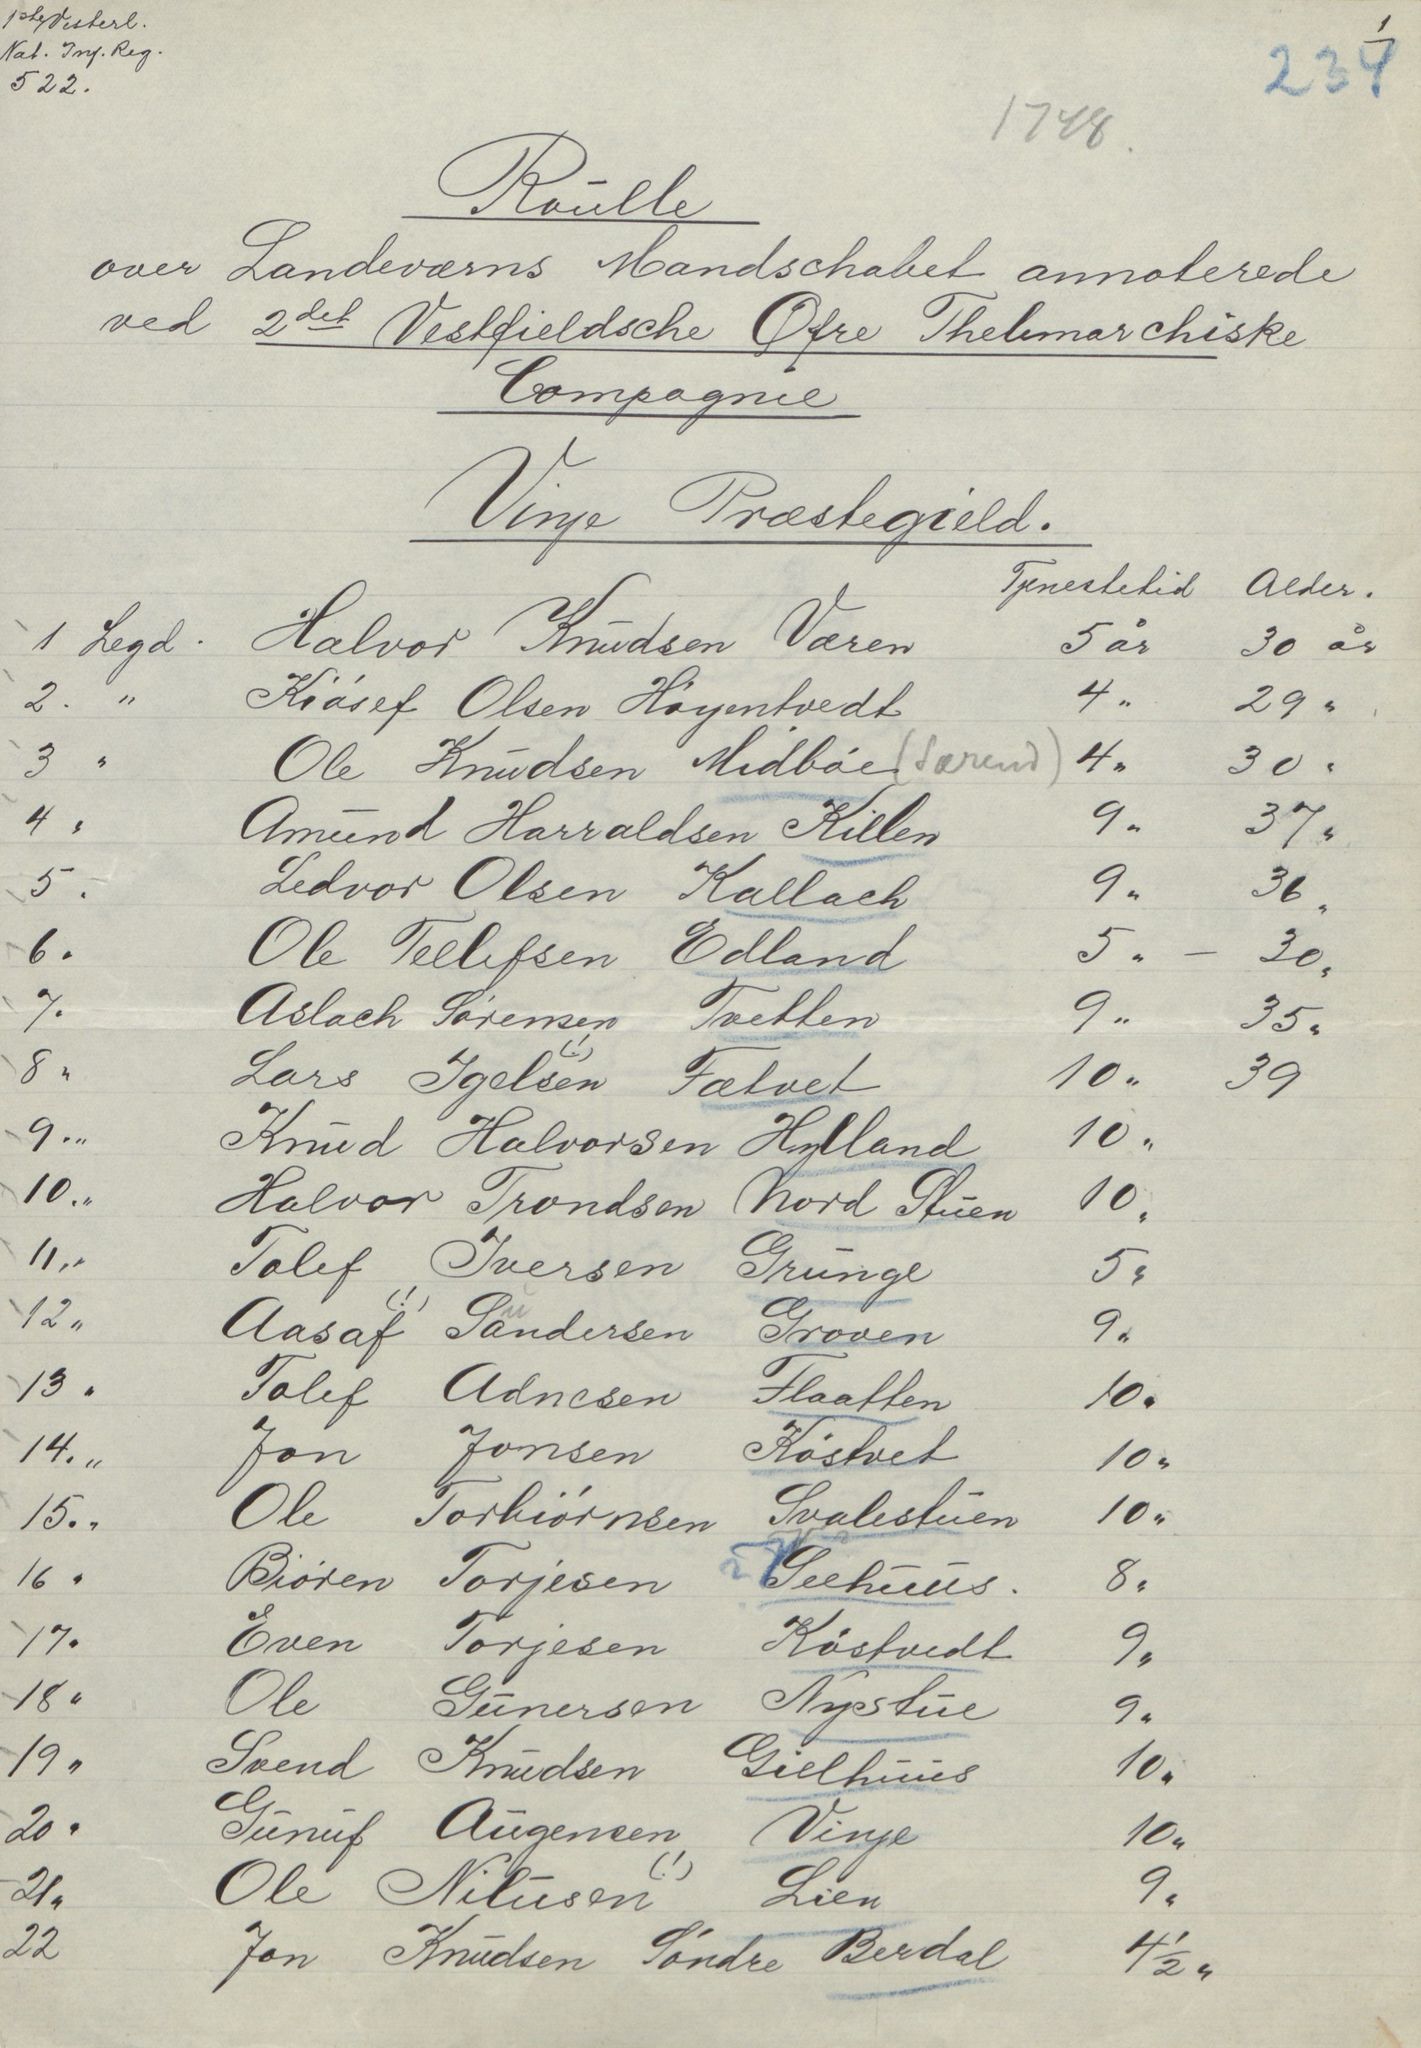 1ste Vesterl.
Nat. Inf. Reg.
522.
1
234
1748.
Roŭlle
over Landeværns Mandschabet annoterede
ved 2det Vestfieldsche Øfre Thelemarchiske
Compagnie
Vinje Præstegield.
Tjenestetid Alder.
1 Legd. Halvor Knŭdsen Væren 5 år 30 år
2. " Kiósef Olsen Höyentvedt 4 " 29 "
3 " Ole Knŭdsen Midbóe 4 " 30 "
4 " Amŭnd Harraldsen Killen 9 " 37 "
5. Ledvor Olsen Kallach 9 " 36 "
6. Ole Tellefsen Edland 5 " - 30 "
7. Aslach Sórensen Tvetten 9 " 35 "
8 " Lars Igelsen (!) Fætvet 10 " 39
9. " Knŭd Halvorsen Hylland 10 "
10. " Halvor Trondsen Nord Stŭen 10 "
11. " Tolef Iversen Grŭnge 5 "
12 " Aasaf (!) Sandersen Groven 9 "
13 " Tolef Adnesen Flaatten 10 "
14. " Jon Jonsen Kóstvet 10 "
15. " Ole Torbiórnsen Svalestŭen 10 "
16 " Bióren Torjesen Seehŭŭs. 8 "
17. Even Torjesen Kóstvedt 9 "
18 " Ole Gŭnersen Nystŭe 9 "
19 " Svend Knŭdsen Gielhŭŭs 10 "
20 " Gŭnŭf Aŭgensen Vinje 10 "
21 " Ole Nilŭsen (!) Lien 9 "
22 Jon Knŭdsen Sóndre Berdal 4 1/2 "